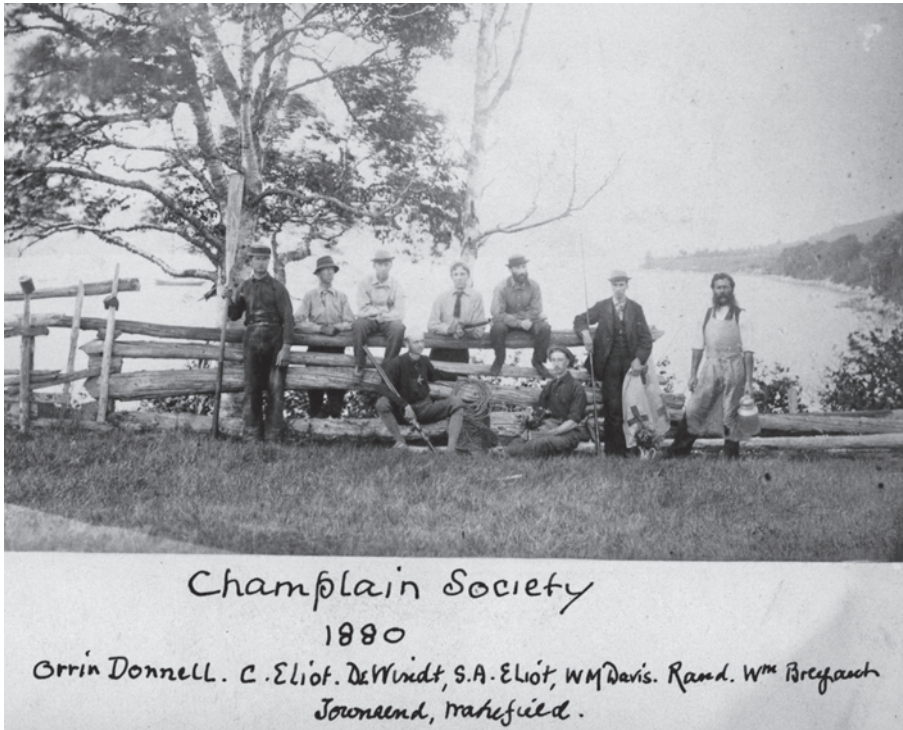 Champlain Society
1880
Orrin Donnell. C. Eliot. DeWindt, S.A. Eliot, WM Davis. Rand. Wm
Townsend, Wakefield.